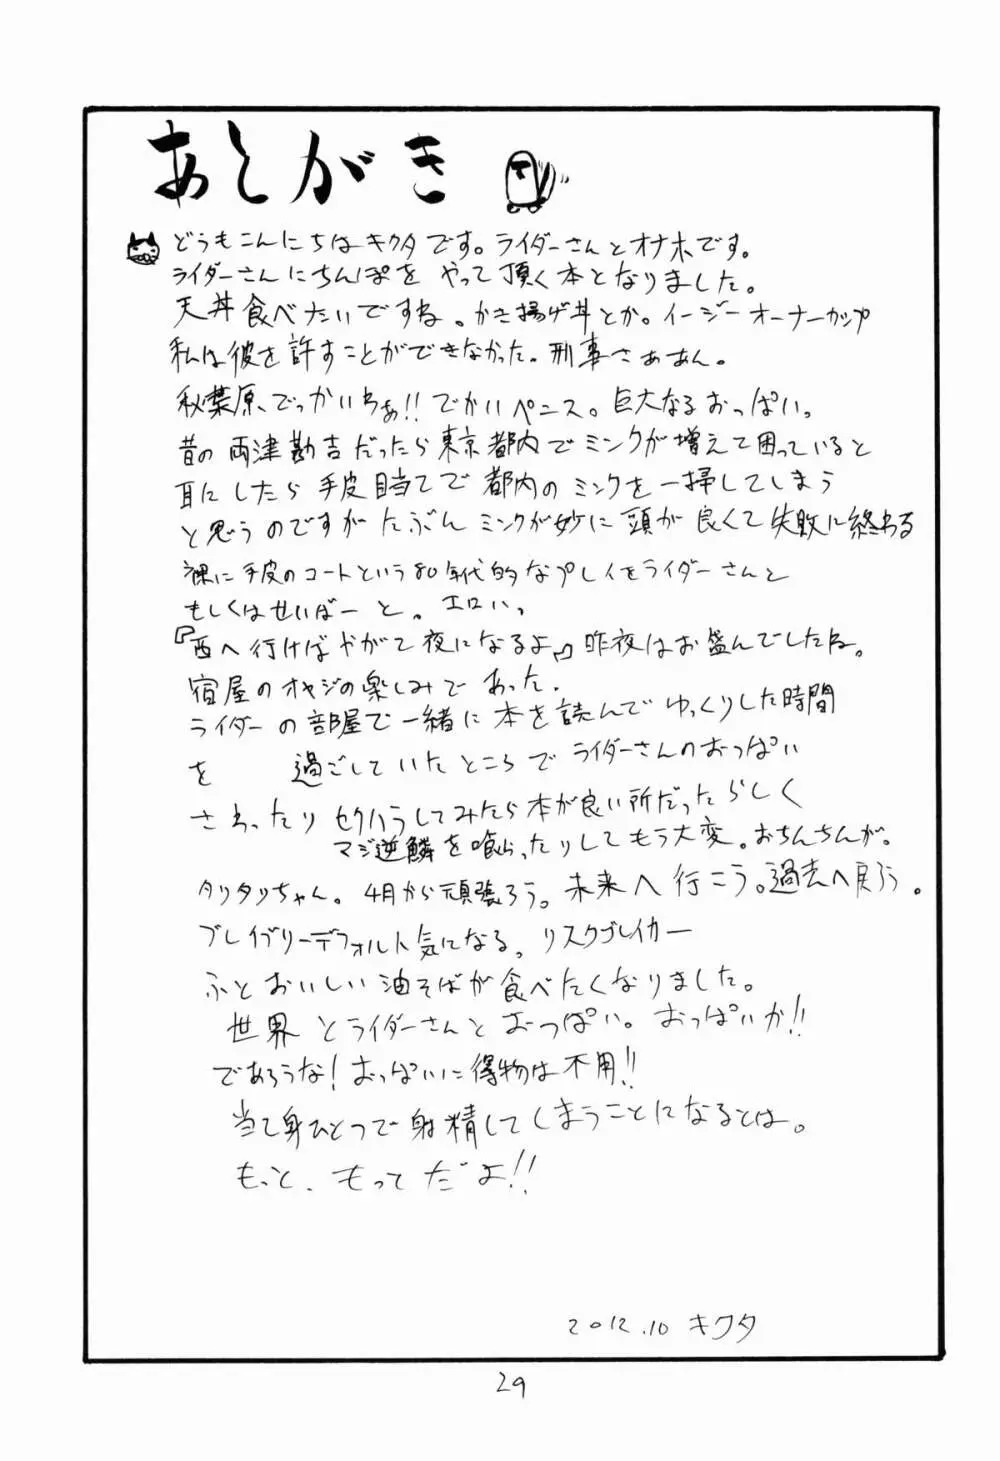 あとがき
どうもこんにちはキクタです。ライダーさんとオナホです。
ライダーさんにちんぽを やって頂く本となりました。
天丼食べたいですね。かき揚げ丼とか。イージーオーナーカップ
私は彼を許すことができなかった。刑事さぁあん。
秋葉原、でっかいわぁ!! でかいペニス。巨大なるおっぱい。
昔の両津勘吉だったら東京都内でミンクが増えて困っていると
耳にしたら 手皮目当てで 都内のミンクを一掃してしまう
と思うのですが たぶん ミンクが妙に 頭が 良くて失敗に終わる
裸に手皮のコートという80年代的なプレイをライダーさんと
もしくはせいばーと。エロい。
『西へ行けばやがて夜になるよ』昨夜はお盛んでしたね。
宿屋のオヤジの楽しみであった.
ライダーの部屋で一緒に本を読んでゆっくりした時間
を 過ごしていたところでライダーさんのおっぱい
さわったり セクハラしてみたら本が良い所だったらしく
マジ逆鱗を喰らったりしてもう大変。おちんちんが。
タリタリちゃん。4月から頑張ろう。未来へ行こう。過去へ戻ろう。
ブレイブリーデフォルト気になる。リスクブレイカー
ふとおいしい油そばが食べたくなりました。
世界とライダーさんとおっぱい。おっぱいか!!
であろうな! おっぱいに得物は不用!!
当て身ひとつで射精してしまうことになるとは。
もっと、もってだよ!!
2012.10 キクタ
29